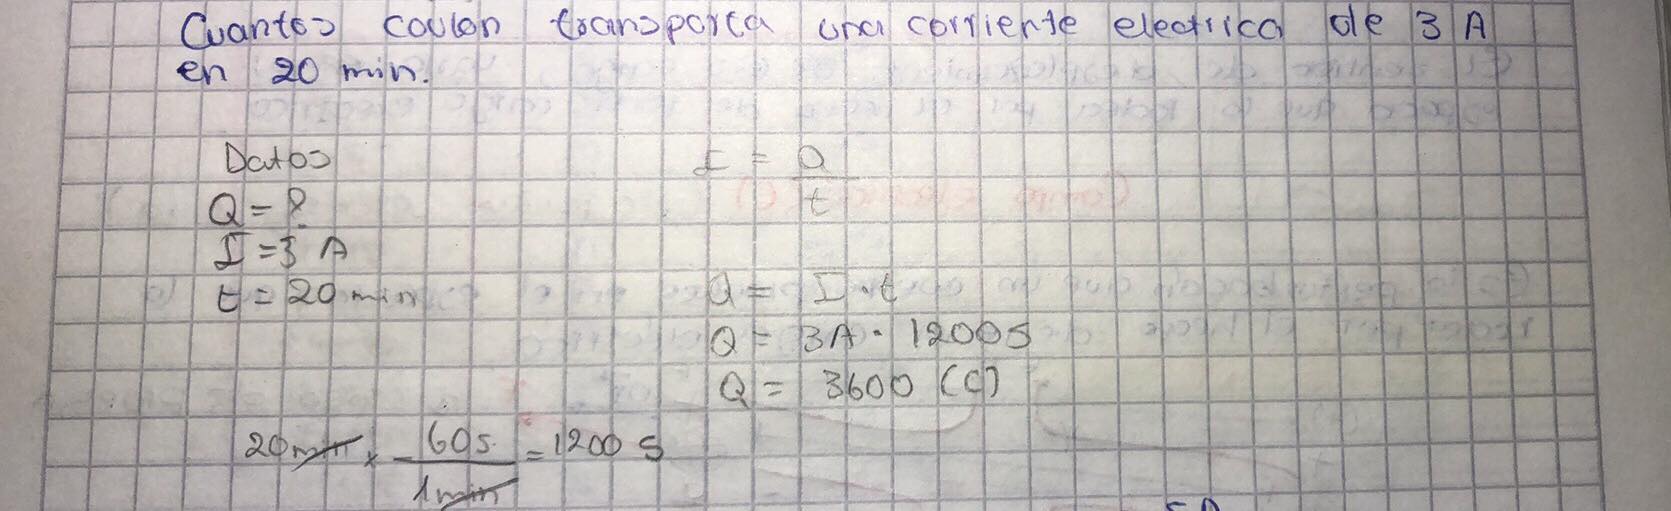 Cuantos coulon transporta una corriente electrica de 3 A
en 20 min.
Datos
Q = ?
I = 3 A
t = 20 min
I = Q
t
Q = I . t
Q = 3A . 1200 s
Q = 3600 (C)
20 min x 60 s = 1200 s
1 min